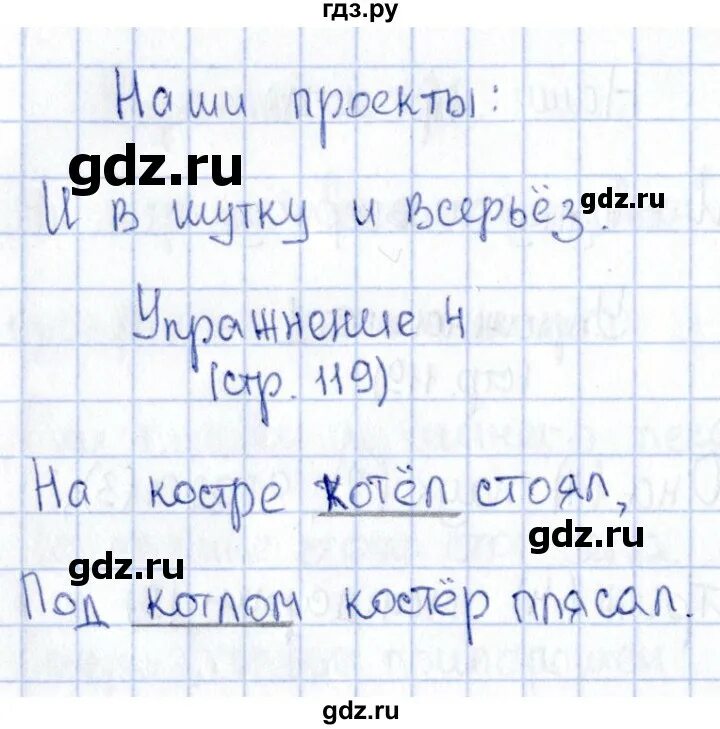 гдз.ру
Наши проекты:
gdz.ru
И в шутку и всерьёз.
gdz.ru
Упражнение 4
(стр. 119)
На костре котёл стоял,
gdz.ru
gdz.ru
Под котлом костёр плясал.
gdz.ru